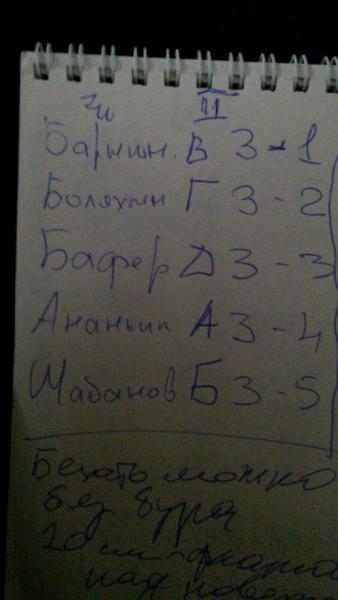 П
Барышн. В 3-1
Боляхин Г 3-2
Бафер Д 3-3
Ананьин А 3-4
Шабанов Б 3-5
Бежать можно
без бура
20 см
над